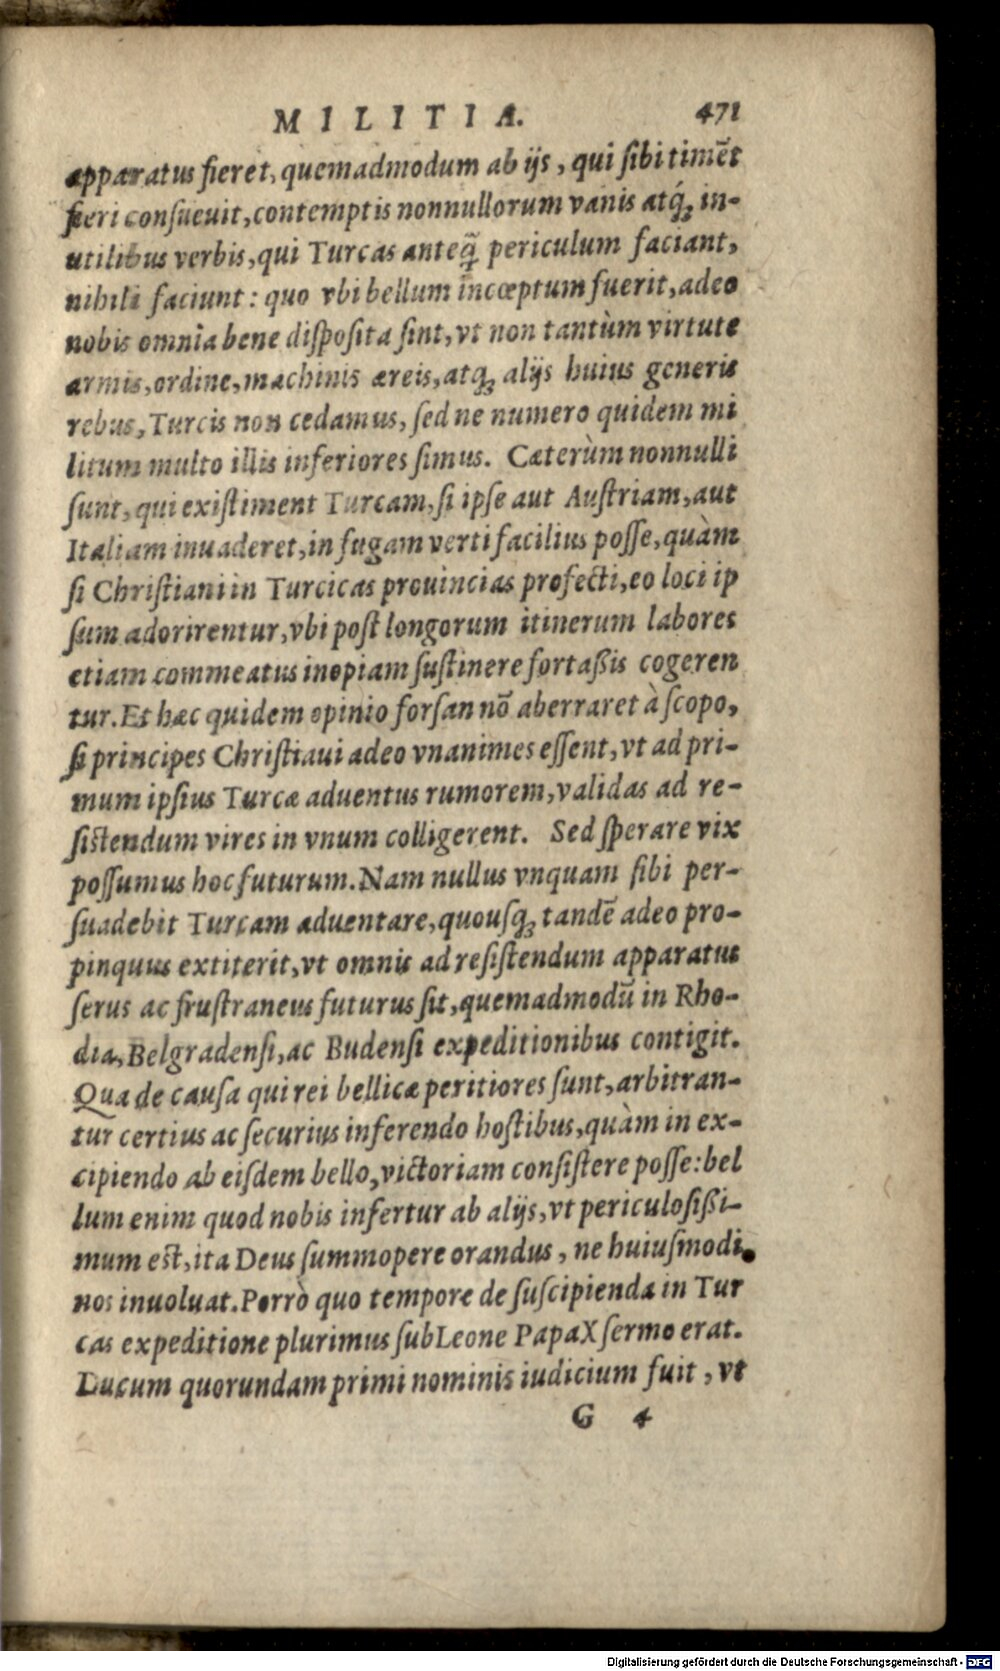 MILITIA. 471
apparatus fieret, quemadmodum ab ijs, qui ſibi timēt
fieri conſueuit, contemptis nonnullorum vanis atq́ꝫ in-
utilibus verbis, qui Turcas anteq̃ periculum faciant,
nihili faciunt: quo vbi bellum incœptum fuerit, adeo
nobis omnia bene diſpoſita ſint, vt non tantùm virtute
armis, ordine, machinis æreis, atqꝫ alijs huius generis
rebus, Turcis non cedamus, ſed ne numero quidem mi
litum multo illis inferiores ſimus. Cæterùm nonnulli
ſunt, qui exiſtiment Turcam, ſi ipſe aut Auſtriam, aut
Italiam inuaderet, in fugam verti facilius poſſe, quàm
ſi Chriſtiani in Turcicas prouincias profecti, eo loci ip
ſum adorirentur, vbi poſt longorum itinerum labores
etiam commeatus inopiam ſuſtinere fortaßis cogeren
tur. Et hæc quidem opinio forſan nō aberraret à ſcopo,
ſi principes Chriſtiaui adeo vnanimes eſſent, vt ad pri-
mum ipſius Turcæ aduentus rumorem, validas ad re-
ſiſtendum vires in vnum colligerent. Sed ſperare vix
poſſumus hoc futurum. Nam nullus vnquam ſibi per-
ſuadebit Turcam aduentare, quouſqꝫ tandē adeo pro-
pinquus extiterit, vt omnis ad reſiſtendum apparatus
ſerus ac fruſtraneus futurus ſit, quemadmodū in Rho-
dia, Belgradenſi, ac Budenſi expeditionibus contigit.
Qua de cauſa qui rei bellicæ peritiores ſunt, arbitran-
tur certius ac ſecurius inferendo hoſtibus, quàm in ex-
cipiendo ab eiſdem bello, victoriam conſiſtere poſſe: bel
lum enim quod nobis infertur ab alijs, vt periculoſißi-
mum eſt, ita Deus ſummopere orandus, ne huiuſmodi
nos inuoluat. Porrò quo tempore de ſuſcipienda in Tur
cas expeditione plurimus ſub Leone Papa X ſermo erat.
Ducum quorundam primi nominis iudicium fuit, vt
G 4
Digitalisierung gefördert durch die Deutsche Forschungsgemeinschaft - DFG